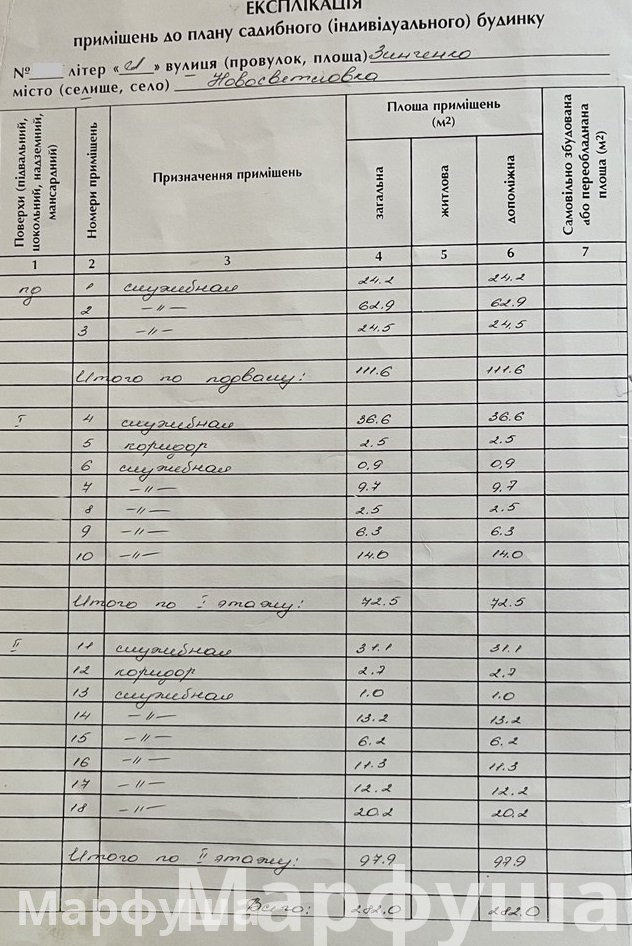 ЕКСПЛІКАЦІЯ
приміщень до плану садибного (індивідуального) будинку
№ літер « и » вулиця (провулок, площа) Зинченко
місто (селище, село) Новосветловка
Поверхи (підвальний, цокольний, надземний, мансардний) Номери приміщень Призначення приміщень Площа приміщень (м2) загальна житлова допоміжна Самовільно збудована або переобладнана площа (м2)
1 2 3 4 5 6 7
пд 1 служебная 24.2 24.2
2 –//– 62.9 62.9
3 –//– 24.5 24,5
Итого по подвалу: 111.6 111.6
I 4 служебная 36.6 36.6
5 коридор 2.5 2.5
6 служебная 0,9 0,9
7 –//– 9.7 9.7
8 –//– 2.5 2.5
9 –//– 6.3 6.3
10 –//– 14.0 14.0
Итого по I этажу: 72.5 72.5
II 11 служебная 31.1 31.1
12 коридор 2.7 2.7
13 служебная 1.0 1.0
14 –//– 13.2 13.2
15 –//– 6.2 6.2
16 –//– 11.3 11.3
17 –//– 12.2 12.2
18 –//– 20.2 20.2
Итого по II этажу: 97.9 97.9
Всего: 282.0 282.0
Марфуша
Марфуша